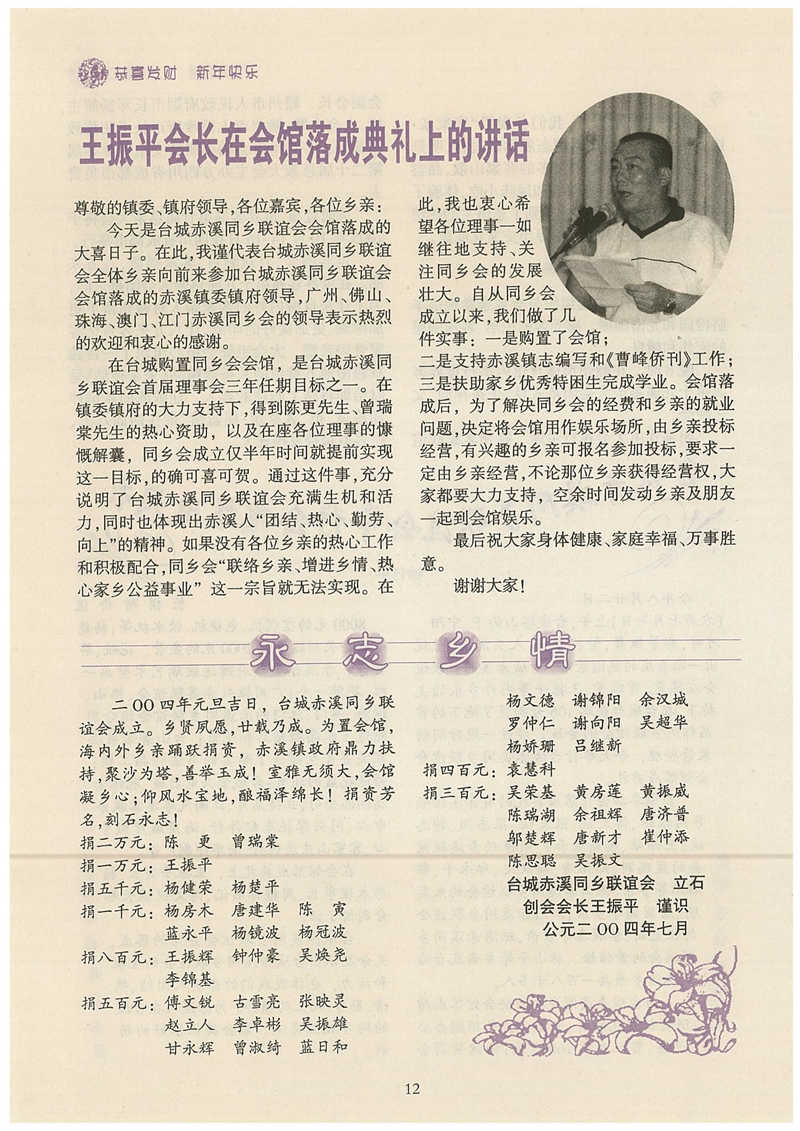 恭喜发财 新年快乐
王振平会长在会馆落成典礼上的讲话
尊敬的镇委、镇府领导,各位嘉宾,各位乡亲:
今天是台城赤溪同乡联谊会会馆落成的
大喜日子。在此,我谨代表台城赤溪同乡联谊
会全体乡亲向前来参加台城赤溪同乡联谊会
会馆落成的赤溪镇委镇府领导,广州、佛山、
珠海、澳门、江门赤溪同乡会的领导表示热烈
的欢迎和衷心的感谢。
在台城购置同乡会会馆，是台城赤溪同
乡联谊会首届理事会三年任期目标之一。在
镇委镇府的大力支持下,得到陈更先生、曾瑞
棠先生的热心资助，以及在座各位理事的慷
慨解囊，同乡会成立仅半年时间就提前实现
这一目标,的确可喜可贺。通过这件事,充分
说明了台城赤溪同乡联谊会充满生机和活
力,同时也体现出赤溪人“团结、热心、勤劳、
向上”的精神。如果没有各位乡亲的热心工作
和积极配合,同乡会“联络乡亲、增进乡情、热
心家乡公益事业”这一宗旨就无法实现。在
此,我也衷心希
望各位理事一如
继往地支持、关
注同乡会的发展
壮大。自从同乡会
成立以来,我们做了几
件实事：一是购置了会馆;
二是支持赤溪镇志编写和《曹峰侨刊》工作;
三是扶助家乡优秀特困生完成学业。会馆落
成后，为了解决同乡会的经费和乡亲的就业
问题,决定将会馆用作娱乐场所,由乡亲投标
经营,有兴趣的乡亲可报名参加投标,要求一
定由乡亲经营,不论那位乡亲获得经营权,大
家都要大力支持，空余时间发动乡亲及朋友
一起到会馆娱乐。
最后祝大家身体健康、家庭幸福、万事胜
意。
谢谢大家!
永志乡情
二○○四年元旦吉日，台城赤溪同乡联
谊会成立。乡贤夙愿,廿载乃成。为置会馆,
海内外乡亲踊跃捐资，赤溪镇政府鼎力扶
持,聚沙为塔,善举玉成！室雅无须大,会馆
凝乡心;仰风水宝地,酿福泽绵长！捐资芳
名,刻石永志!
捐二万元：陈 更 曾瑞棠
捐一万元：王振平
捐五千元：杨健荣 杨楚平
捐一千元：杨房木 唐建华 陈 寅
蓝永平 杨镜波 杨冠波
捐八百元：王振辉 钟仲豪 吴焕尧
李锦基
捐五百元：傅文锐 古雪亮 张映灵
赵立人 李卓彬 吴振雄
甘永辉 曾淑绮 蓝日和
杨文德 谢锦阳 余汉城
罗仲仁 谢向阳 吴超华
杨娇珊 吕继新
捐四百元：袁慧科
捐三百元：吴荣基 黄房莲 黄振威
陈瑞湖 余祖辉 唐济普
邬楚辉 唐新才 崔仲添
陈思聪 吴振文
台城赤溪同乡联谊会 立石
创会会长王振平 谨识
公元二○○四年七月
12